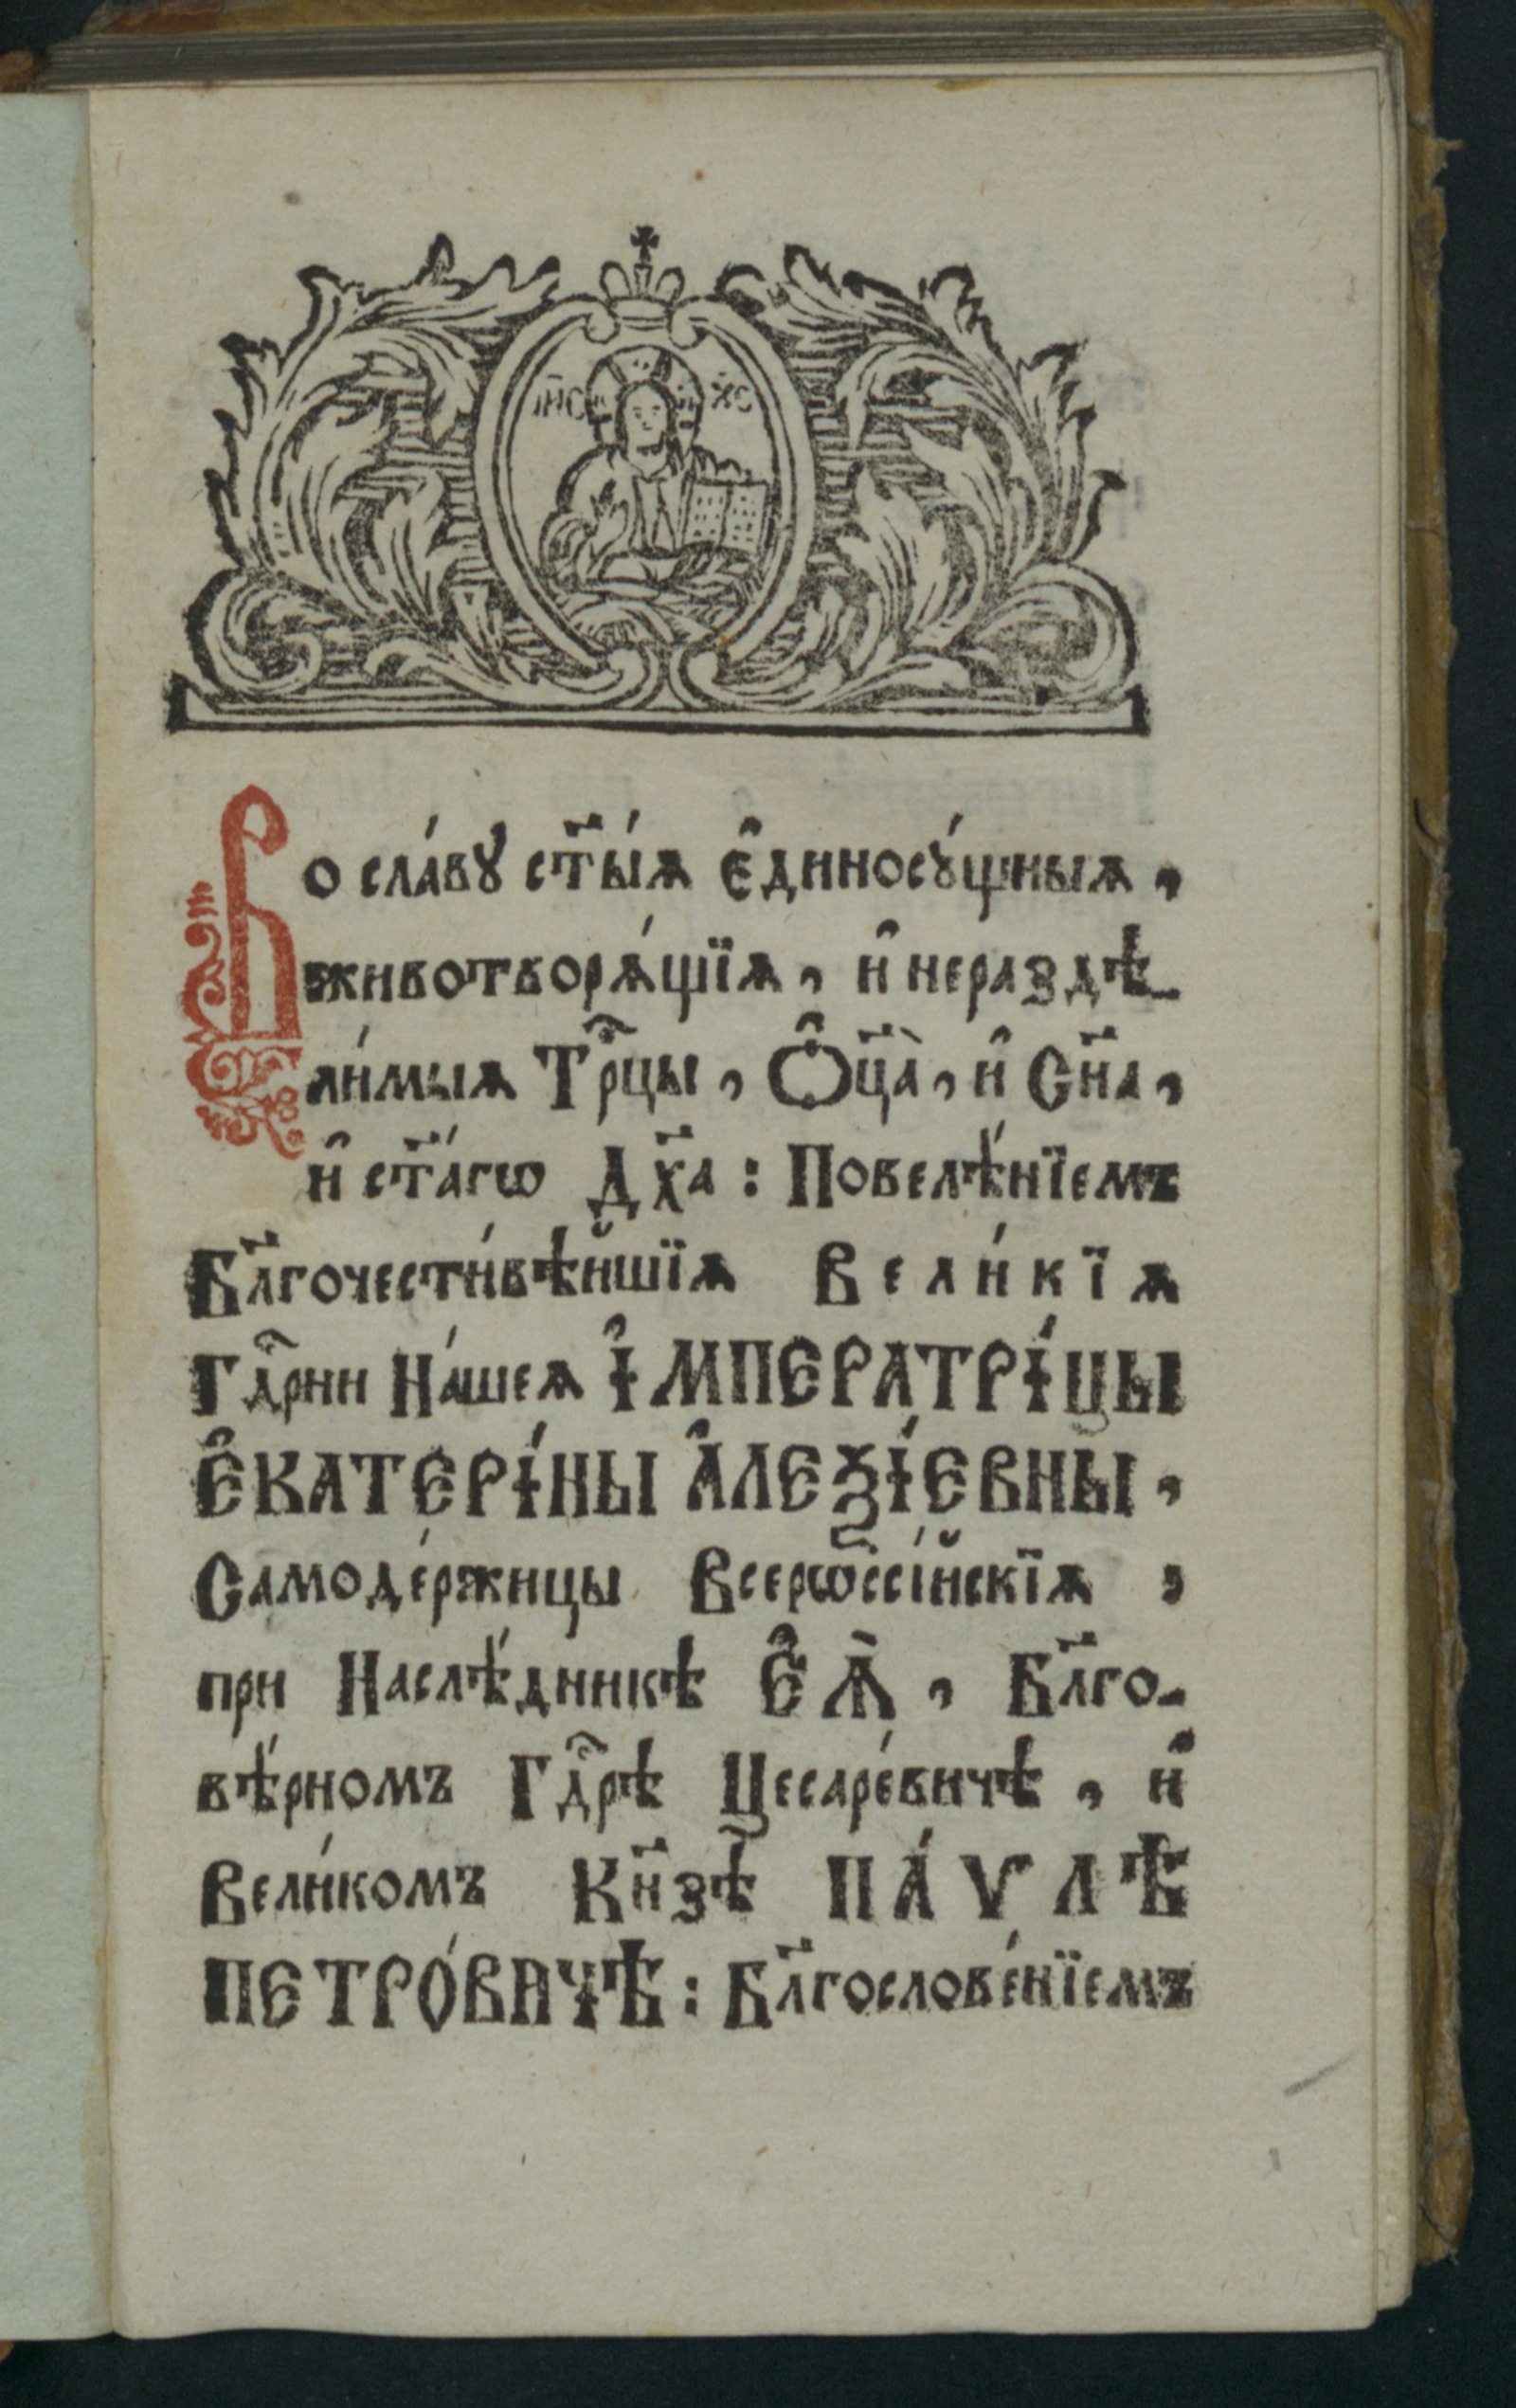 І҃ИС Х҃С
Во сла́вꙋ ст҃ы́ѧ є҆диносꙋ́щныѧ,
животворѧ́щїѧ, и҆ нераздѣ-
ли́мыѧ Трⷪ҇цы, Ѻ҆ц҃а̀, и҆ Сн҃а,
и҆ ст҃а́гѡ Дх҃а: Повелѣ́нїемъ
Бл҃гочести́вѣйшїѧ Вели́кїѧ
Гдⷭ҇рни На́шеѧ І҆МПЕРАТРІ́ЦЫ
Є҆КАТЕРІ́НЫ А҆ЛЕѮІ́ЕВНЫ,
Самоде́ржицы Всерѡссі́йскїѧ,
при Наслѣ́дникѣ Є҆Ѧ̀, Бл҃го-
вѣ́рномъ Гдⷭ҇рѣ Цесаре́вичѣ, и҆
Вели́комъ Кн҃зѣ ПА́ѴЛѢ
ПЕТРО́ВИЧѢ: Бл҃гослове́нїемъ